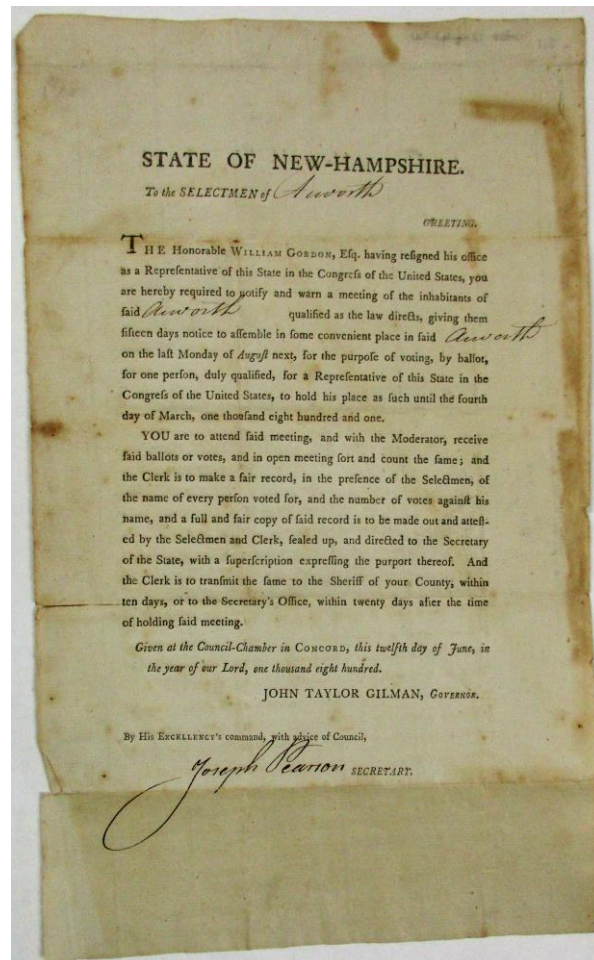 STATE OF NEW-HAMPSHIRE.
To the SELECTMEN of Acworth
GREETING.
THE Honorable WILLIAM GORDON, Esq. having resigned his office
as a Representative of this State in the Congreſs of the United States, you
are hereby required to notify and warn a meeting of the inhabitants of
ſaid Acworth qualified as the law directs, giving them
fifteen days notice to aſſemble in ſome convenient place in ſaid Acworth
on the laſt Monday of Auguſt next, for the purpoſe of voting, by ballot,
for one perſon, duly qualified, for a Repreſentative of this State in the
Congreſs of the United States, to hold his place as ſuch until the fourth
day of March, one thouſand eight hundred and one.
YOU are to attend ſaid meeting, and with the Moderator, receive
ſaid ballots or votes, and in open meeting ſort and count the ſame; and
the Clerk is to make a fair record, in the preſence of the Selectmen, of
the name of every perſon voted for, and the number of votes againſt his
name, and a full and fair copy of ſaid record is to be made out and atteſt-
ed by the Selectmen and Clerk, ſealed up, and directed to the Secretary
of the State, with a ſuperſcription expreſſing the purport thereof. And
the Clerk is to tranſmit the ſame to the Sheriff of your County, within
ten days, or to the Secretary's Office, within twenty days after the time
of holding ſaid meeting.
Given at the Council-Chamber in CONCORD, this twelfth day of June, in
the year of our Lord, one thouſand eight hundred.
JOHN TAYLOR GILMAN, GOVERNOR.
By His EXCELLENCY's command, with advice of Council,
Joseph Pearson SECRETARY.